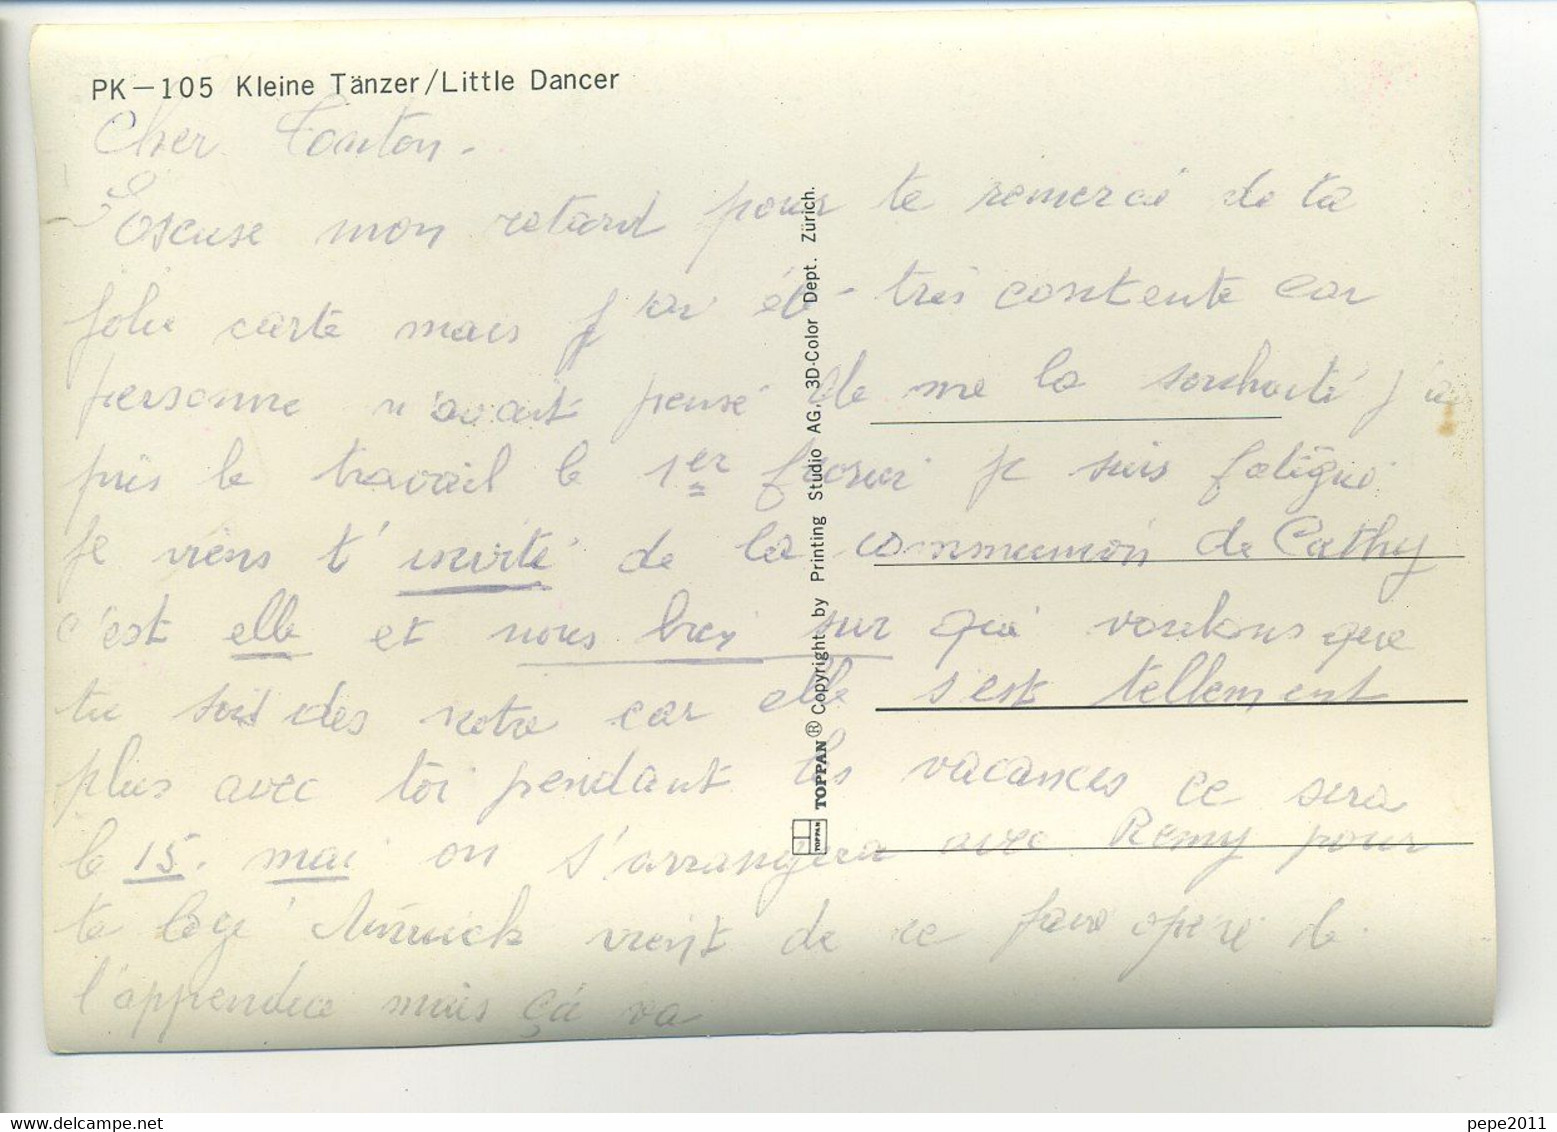 PK—105 Kleine Tänzer/Little Dancer
Cher Tonton.
Excuse mon retard pour te remercié de ta
jolie carte mais j'ai été très contente car
personne n'avait pensé de me la souhaité j'ai
pris le travail le 1er je suis fatigué
je viens t'invité de la communion de Cathy
c'est elle et nous bien sur qui voulons que
tu sois des notre car elle s'est tellement
plus avec toi pendant les vacances ce sera
le 15. mai on s'arrangera avec Remy pour
te logé Annick vient de ce faire opéré de
l'appendice mais çà va
TOPPAN® Copyright by Printing Studio AG, 3D-Color Dept. Zürich.
TOPPAN
delcampe.net
pepe2011